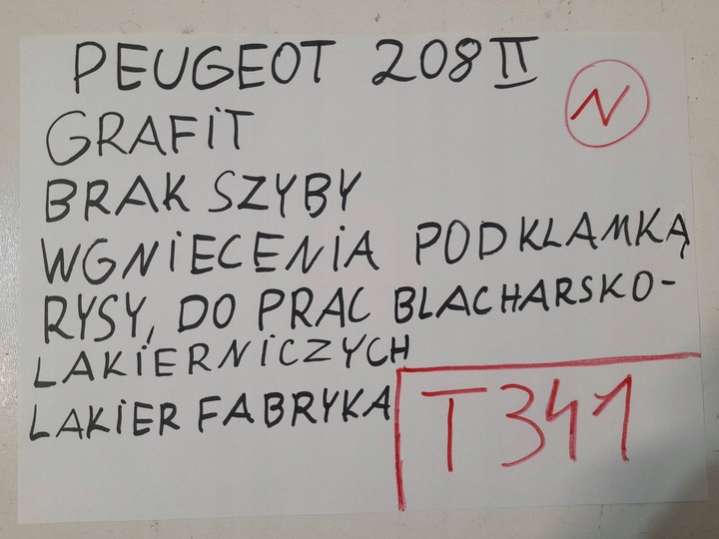 PEUGEOT 208 II
N
GRAFiT
BRAK SZYBY
WGNiECENiA PODKLAMKĄ
RYSY, DO PRAC BLACHARSKO-
LAKiERNiCZYCH
LAKiER FABRYKA
T341